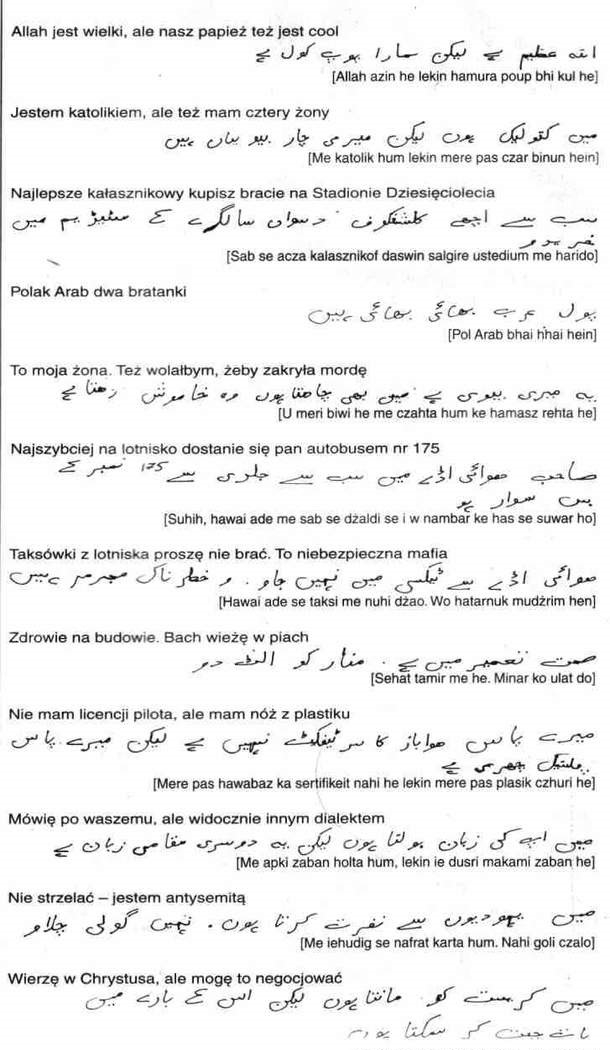 Allah jest wielki, ale nasz papież też jest cool
اللہ عظیم ہے لیکن ہمارا پوپ بھی کول ہے
[Allah azin he lekin hamura poup bhi kul he]
Jestem katolikiem, ale też mam cztery żony
میں کتولیک ہوں لیکن میری چار بیویاں ہیں
[Me katolik hum lekin mere pas czar binun hein]
Najlepsze kałasznikowy kupisz bracie na Stadionie Dziesięciolecia
سب سے اچھے کلشنکوف دسواں سالگرے کے سٹیڈیم میں
[Sab se acza kalasznikof daswin salgire ustedium me harido]
Polak Arab dwa bratanki
پول عرب بھائی بھائی ہیں
[Pol Arab bhai hhai hein]
To moja żona. Też wolałbym, żeby zakryła mordę
یہ میری بیوی ہے میں بھی چاہتا ہوں وہ خاموش رہتا ہے
[U meri biwi he me czahta hum ke hamasz rehta he]
Najszybciej na lotnisko dostanie się pan autobusem nr 175
صاحب ہوائی اڈے میں سب سے جلدی سے 175 نمبر کے
بس سوار ہو
[Suhih, hawai ade me sab se dżaldi se i w nambar ke has se suwar ho]
Taksówki z lotniska proszę nie brać. To niebezpieczna mafia
ہوائی اڈے سے ٹیکسی میں نہیں جاو۔ و خطرناک مجرم ہیں
[Hawai ade se taksi me nuhi dżao. Wo hatarnuk mudżrim hen]
Zdrowie na budowie. Bach wieżę w piach
صحت تعمیر میں ہے۔ منار کو الٹ دو
[Sehat tamir me he. Minar ko ulat do]
Nie mam licencji pilota, ale mam nóż z plastiku
میرے پاس ہواباز کا سرٹیفکٹ نہیں ہے لیکن میرے پاس
پلسٹیک چھری ہے
[Mere pas hawabaz ka sertifikeit nahi he lekin mere pas plasik czhuri he]
Mówię po waszemu, ale widocznie innym dialektem
میں آپ کی زبان بولتا ہوں لیکن یہ دوسری مقامی زبان ہے
[Me apki zaban holta hum, lekin ie dusri makami zaban he]
Nie strzelać – jestem antysemitą
میں یہودیوں سے نفرت کرتا ہوں۔ نہیں گولی چلاو
[Me iehudig se nafrat karta hum. Nahi goli czalo]
Wierzę w Chrystusa, ale mogę to negocjować
میں کرسٹ کو مانتا ہوں لیکن اس کے بارے میں
بات چیت کر سکتا ہوں